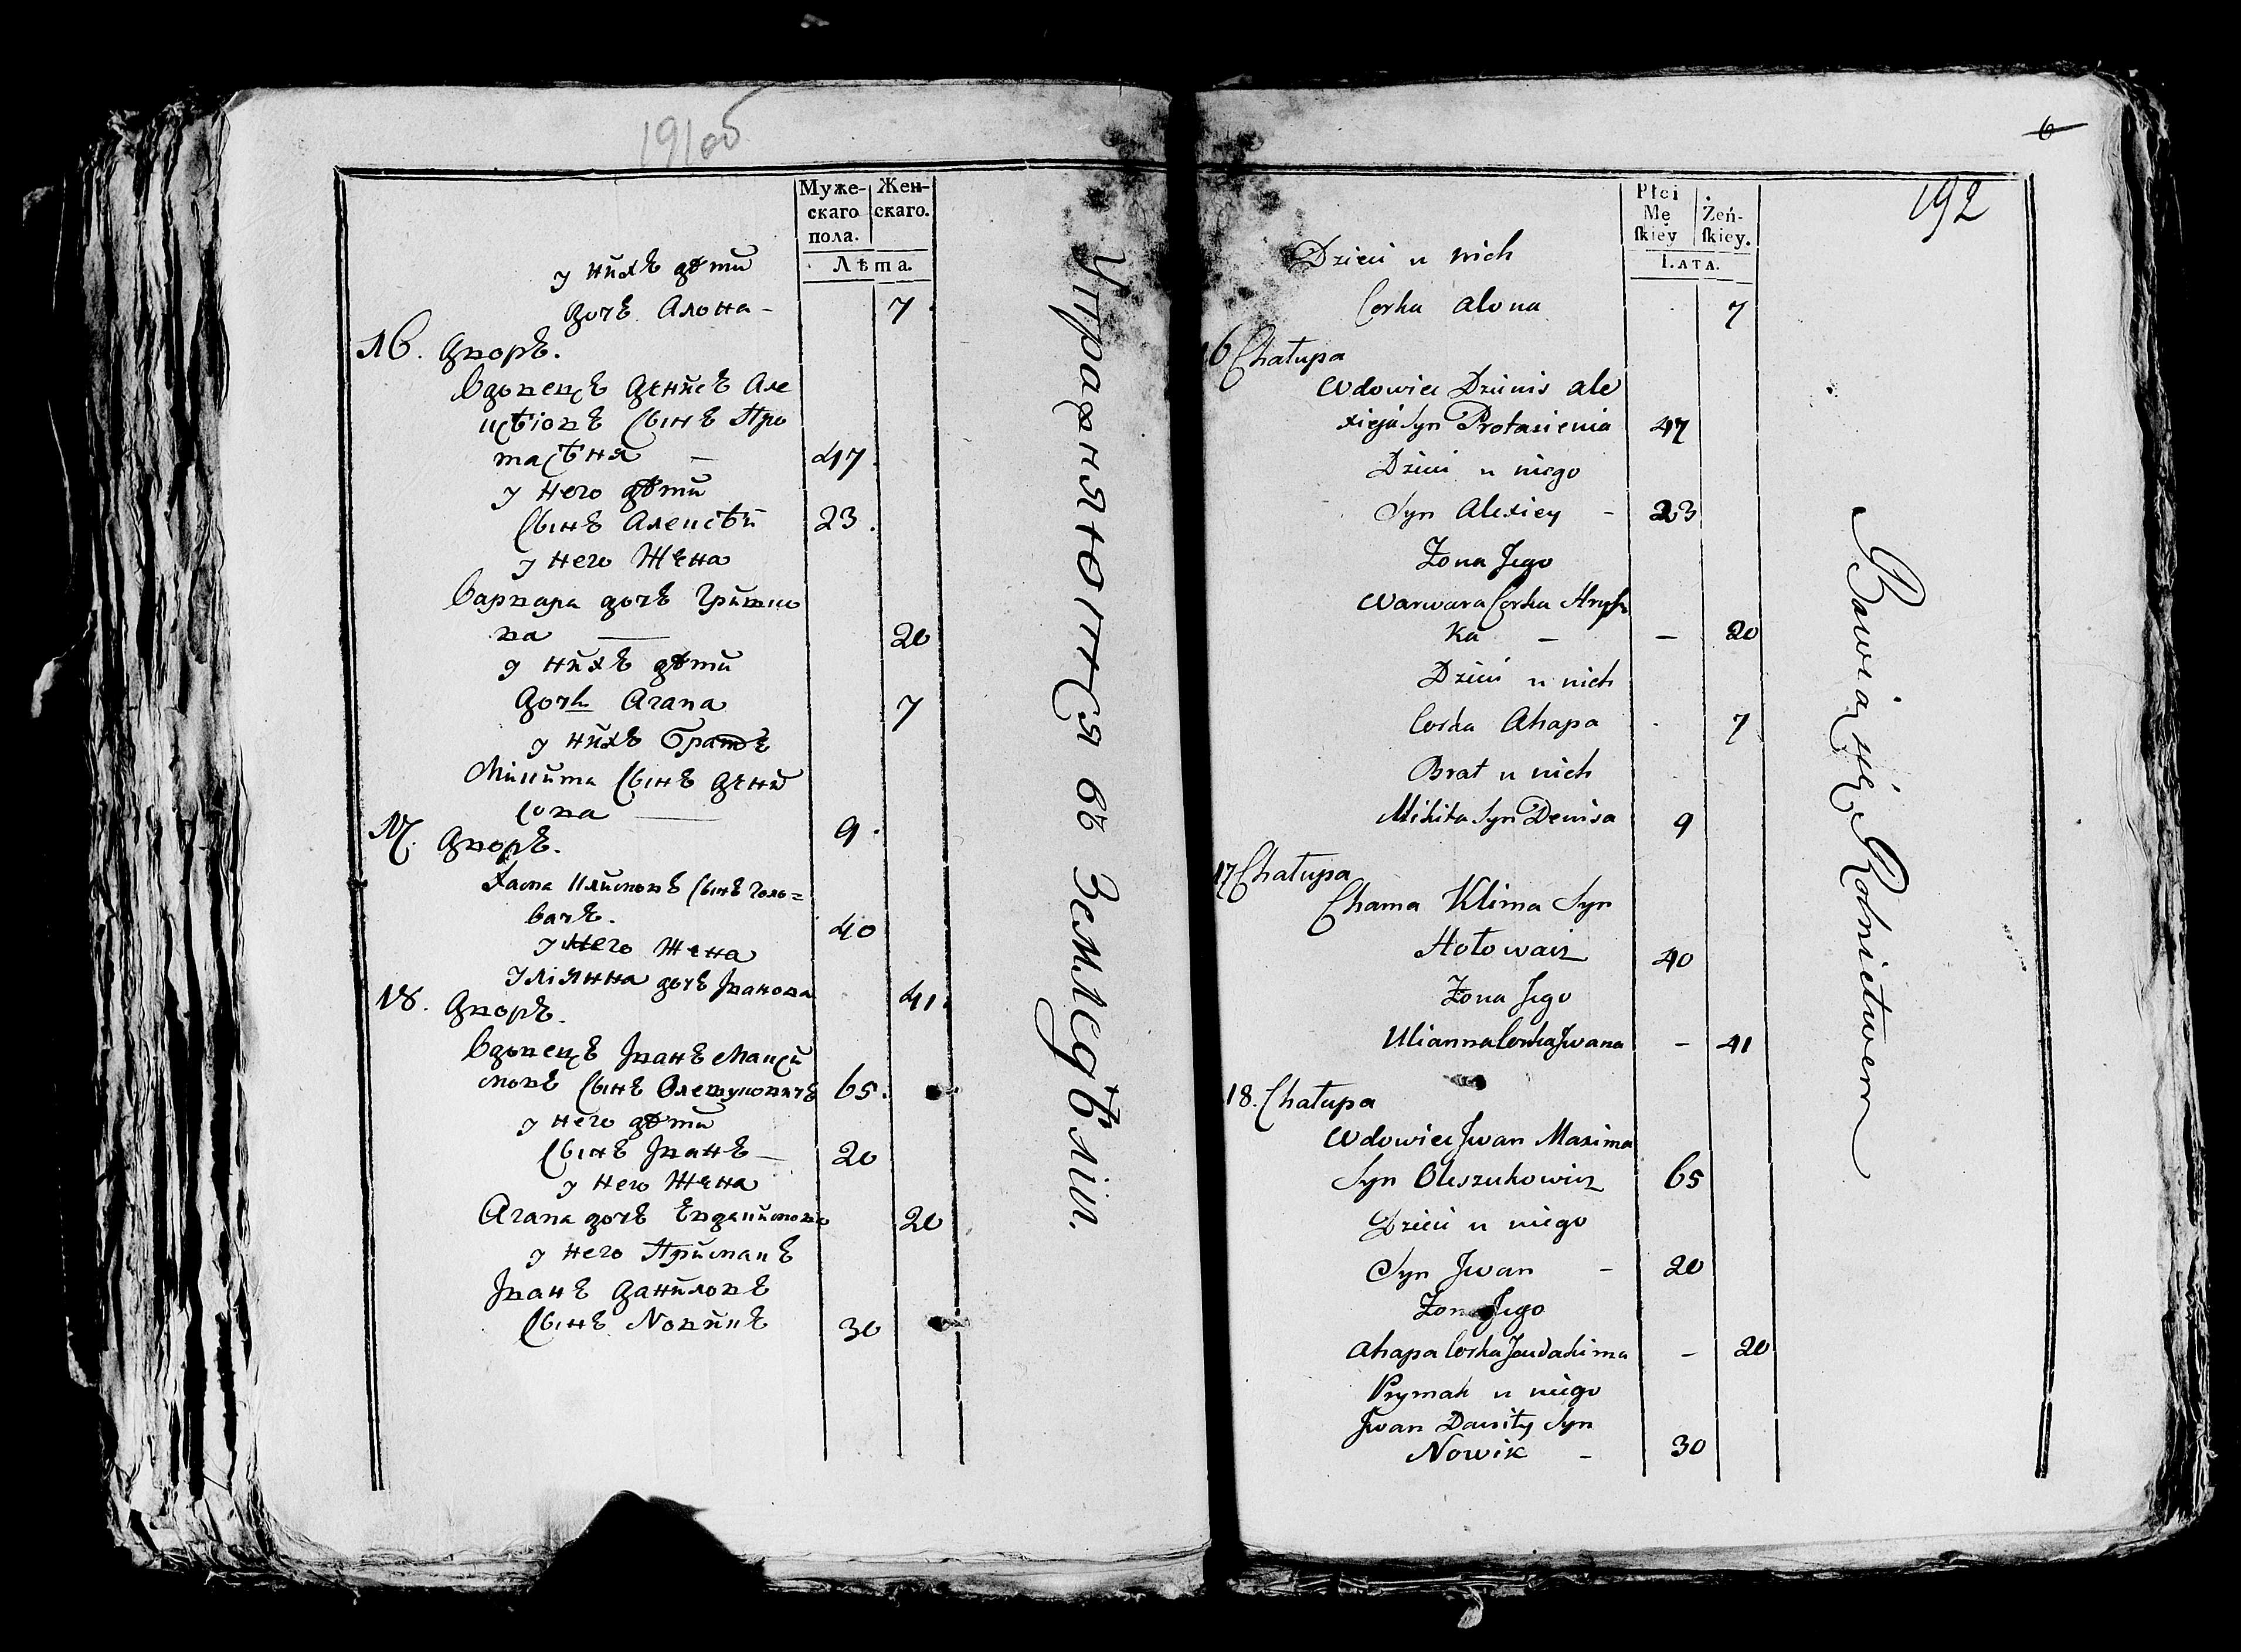 191об
Муже-
скаго
пола.
Жен-
скаго.
Лѣта.
у нихъ дѣти
дочъ Алона - 7.
16. Дворъ.
Вдовецъ Денисъ Але
цѣіовъ Сынъ Про
тасѣня - 47.
у него дѣти
Сынъ Алексѣй 23.
у него Жена
Варвара дочъ Гришко
ва 20
у нихъ дѣти
Дочь Агапа 7
у нихъ братъ
Микита Сынъ Дени
сова 9.
17. Дворъ.
Хама Климовъ Сынъ Голо=
вачъ. 40
у него Жена
Уліянна дочъ Іванова 41.
18. Дворъ.
Вдовецъ Іванъ Макси
мовъ Сынъ Олешуковичъ 65.
у него дѣти
Сынъ Іванъ - 20
у него Жена
Агапа дочъ Евдакимова 20
у него Примакъ
Іванъ Даниловъ
Сынъ Новикъ 30
Упражняются въ Земледѣліи.
6
192
Płci
Mę
skiey
Żeń-
skiey.
LATA.
Dzieci u nich
Corka Alona 7
16 Chałupa
Wdowiec Dzienis Ale
xieja Syn Protasienia 47
Dzieci u niego
Syn Alexiey - 23
Zona Jego
Warwara Corka Hrysz
ka - - 20
Dzieci u nich
Corka Ahapa 7
Brat u nich
Mikita Syn Denisa 9
17 Chałupa
Chama Klima Syn
Hołowacz 40
Zona Jego
Ulianna Corka Jwana - 41
18. Chałupa
Wdowiec Jwan Maxima
Syn Oleszukowicz 65
Dzieci u niego
Syn Jwan - 20
Zona Jego
Ahapa Corka Jewdakima - 20
Prymak u niego
Jwan Daniły Syn
Nowik - 30
Bawią się Rolnictwem